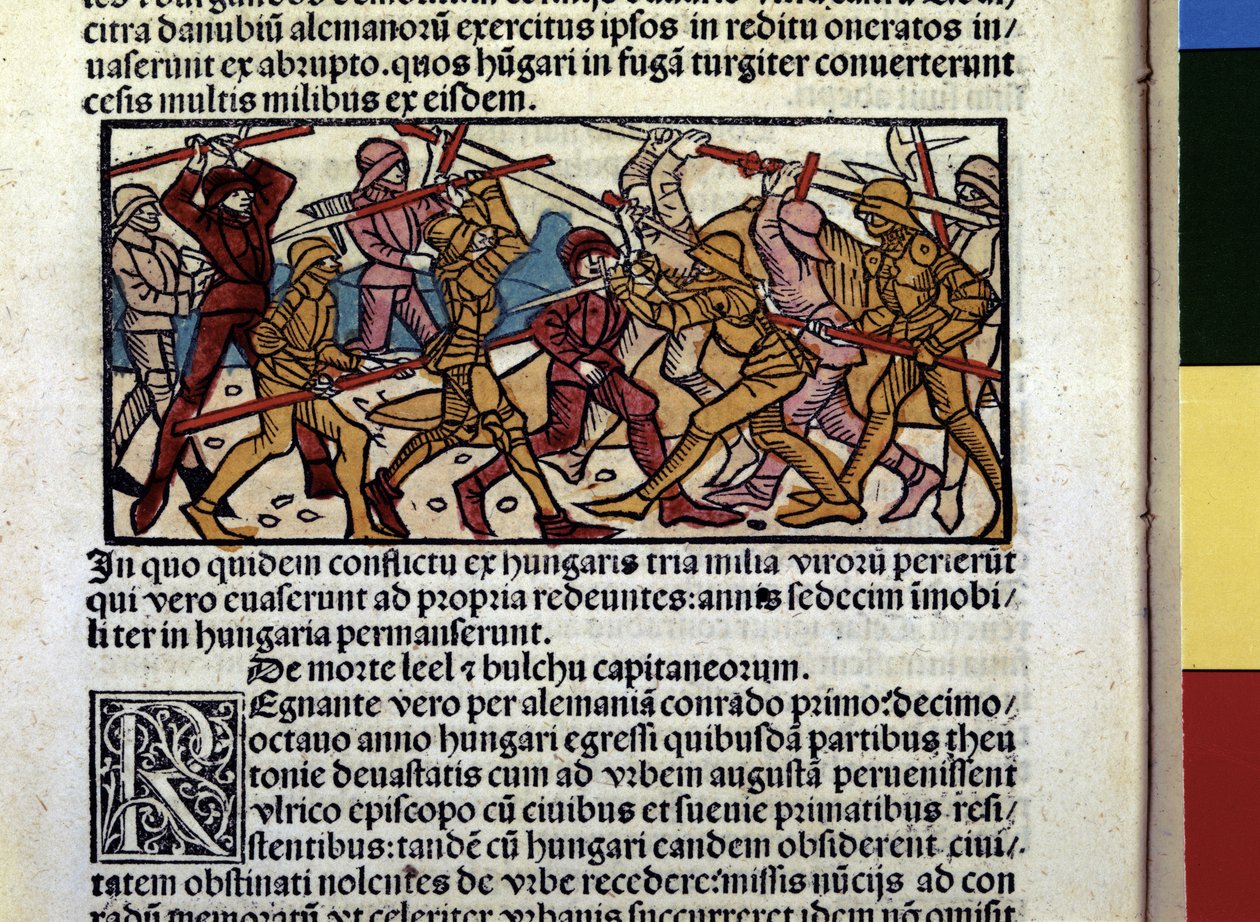 citra danubiū alemanorū exercitus ipsos in reditu oneratos in/
uaserunt ex abrupto.quos hūgari in fugā turgiter conuerterunt
cesis multis milibus ex eisdem.
In quo quidem conflictu ex hungaris tria milia virorū perierūt
qui vero euaserunt ad propria redeuntes:annis sedecim īmobi/
liter in hungaria permanserunt.
De morte leel ⁊ bulchu capitaneorum.
REgnante vero per alemaniā conrado primo:decimo/
octauo anno hungari egressi quibusdā partibus theu
tonie deuastatis cum ad vrbem augustā peruenissent
vlrico episcopo cū ciuibus et sueuie primatibus resi/
stentibus:tandē cū hungari eandem obsiderent ciui/
tatem obstinati nolentes de vrbe recedere:missis nūcijs ad con
radū memoratū vt celeriter vrbanis succurreret idem nō omisit